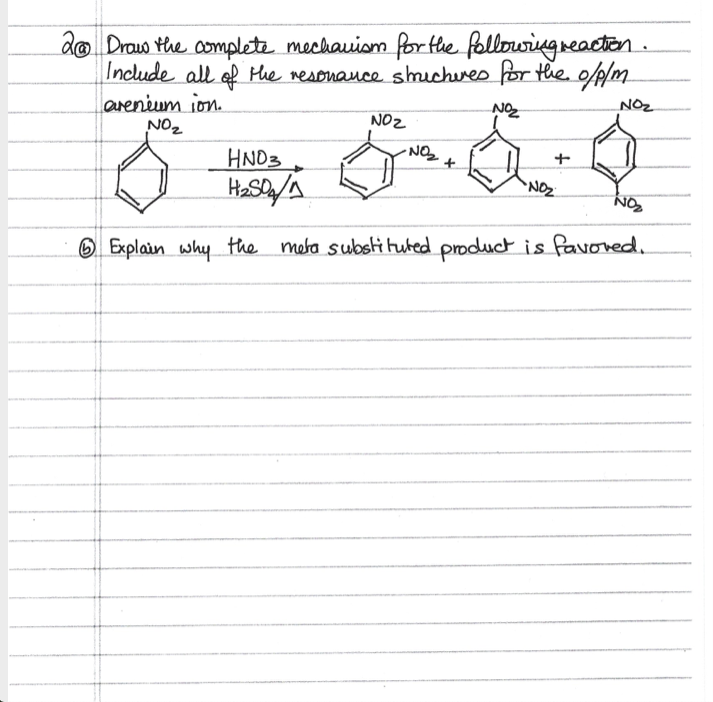 2ⓐ Draw the complete mechanism for the following reaction.
Include all of the resonance structures for the o/p/m
arenium ion.
NO2 NO2 NO2 NO2
HNO3 NO2 + +
H2SO4/Δ NO2 NO2
ⓑ Explain why the meta substituted product is favored.